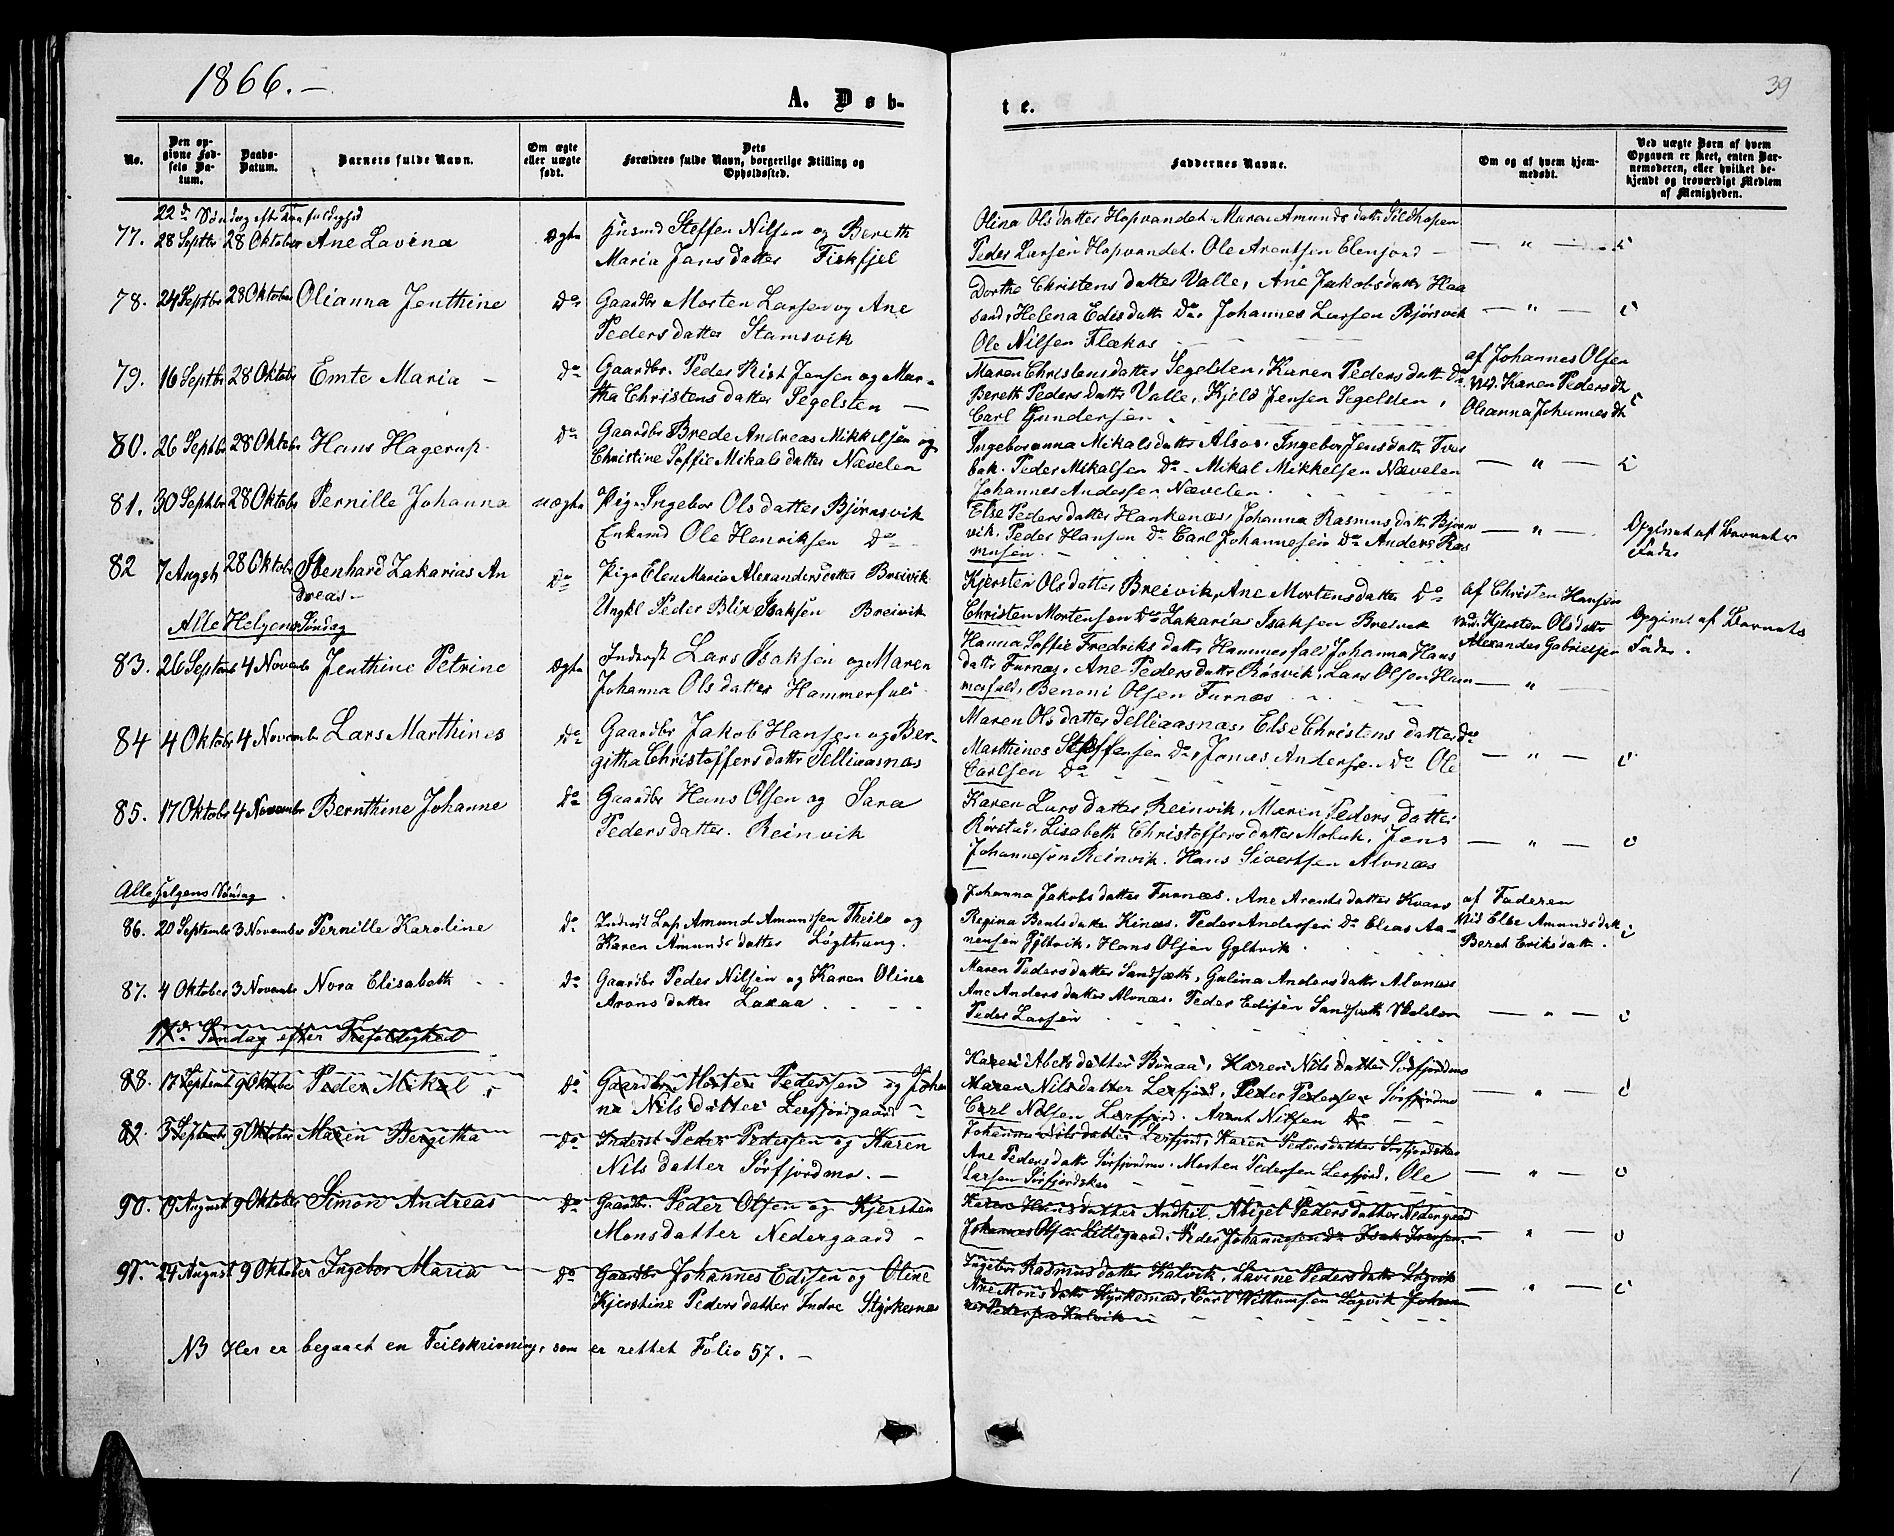 1866.—
39
A. Døb-
te.
No.
Den opgivne Fødsels Datum.
Daabs-Datum.
Barnets fulde Navn.
Om ægte eller uægte født.
Dets Forældres fulde Navn, borgerlige Stilling og Opholdssted.
Faddernes Navne.
Om og af hvem hjemmedøbt.
Ved uægte Børn af hvem Opgaven er skeet, enten Barnemoderen, eller hvilket bekjendt og troværdigt Medlem af Menigheden.
22de Søndag efter Trefoldighed
77. 28 Septbr 28 Oktober Ane Lavina ægte Husmd Steffen Nilsen og Bereth
Maria Jansdatter Fiskfjel
Olina Olsdatter Hopvandet. Maren Amundsdattr Sildhopen
Peder Larsen Hopvandet. Ole Arentsen Elvfjord —
— " —
78. 24 Septbr 28 Oktober Olianna Jenthine Do Gaardbr Morten Larsen og Ane
Pedersdatter Stamsvik
Dorthe Christensdatter Valle, Ane Jakobsdatter Haa
sand, Helena Edisdattr Do, Johannes Larsen Bjørsvik
Ole Nilsen Flækos
— " —
79. 16 Septbr 28 Oktobr Emte Maria — Do Gaardbr. Peder Rist Jensen og Mar-
tha Christensdatter Segelsten —
Maren Christensdatter Segelsten, Karen Pedersdatt Do
Bereth Pedersdattr Valle, Kjeld Jensen Segelsten,
Carl Gundersen
af Johannes Olsen
Vid. Karen Pedersdtr
Olianna Johannesdtr
80. 26 Septbr 28 Oktobr Hans Hagerup Do Gaardbr Brede Andreas Mikkelsen og
Christine Soffie Mikalsdatter Nævelen
Ingeboranna Mikalsdatter Alsos. Ingebor Jensdattr Tver
bak. Peder Mikalsen Do. Mikal Mikkelsen Nævelen
Johannes Andersen Nævelen.
— " —
81. 30 Septbr 28 Oktobr Pernille Johanna uægte Pige Ingebor Olsdatter Bjørnsvik
Enkemd Ole Henriksen Do
Else Pedersdatter Hankenæs, Johanna Rasmusdattr Bjørns
vik. Peder Hansen Do. Carl Johannesen Do. Anders Ras
musen. —
— " —
Opgivet af Barnets
Fader
82 7 August 28 Oktobr Stenhard Zakarias An
dreas —
Do Pige Elen Maria Alexandersdatter Breivik
Ungkl Peder Blix Isaksen Breivik
Kjersten Olsdatter Breivik, Ane Mortensdatter Do
Christen Mortensen Do Zakarias Isaksen Breivik
af Christen Hansen
Vid. Kjersten Olsdattr
Alexander Gabrielsen
Opgivet af Barnets
Fader.
Alle Helgens Søndag
83. 26 Septemb 4 Novembr Jenthine Petrine ægte Inderst Lars Isaksen og Maren
Johanna Olsdatter Hammerfald.
Hanna Soffie Fredriksdattr Hammerfald Johanna Hans
dattr Furnæs, Ane Pedersdattr Røsvik, Lars Olsen Ham
merfald, Benoni Olsen Furnæs
— " —
84 4 Oktobr 4 Novembr Lars Marthines Do Gaardbr Jakob Hansen og Ber-
githa Christoffersdattr Tilliaasnæs
Maren Olsdatter Tilliaasnæs, Else Christensdatter Do
Marthines Steffensen Do, Jonas Andersen Do Ole
Carlsen Do
— " —
85. 17 Oktobr 4 Novembr Bernthine Johanne Do Gaardbr Hans Olsen og Sara
Pedersdatter. Reinvik
Karen Larsdatter Reinvik, Maren Pedersdatter
Rørstad, Lisabeth Christoffersdatter Molvik, Jens
Johannesen Reinvik. Hans Sivertsen Alvnæs
— " —
Alle Helgens Søndag
86. 20 Septembr 3 November Pernille Karoline Do Inderst Lap Amund Amundsen Theilo og
Karen Amundsdatter Løgthung.
Johanna Jakobsdatter Furnæs. Ane Arentsdatter Kvars
Regina Bentsdatter Kinæs. Peder Andersen Do Elias Aa-
nensen Gyltvik, Hans Olsen Gyltvik
af Faderen
Vid Else Amundsdatt
Beret Eriksdattr.
87. 4 Oktober 3 Novembr Nora Elisabeth Do Gaardbr Peder Nilsen og Karen Olina
Aronsdatter Laxaa
Maren Pedersdatter Sandsæth, Gulina Andersdatter Alvnæs
Ane Andersdatter Alvnæs. Peder Edisen Sandsæth
Peder Larsen
— " —
17de Søndag efter Trefoldighed
88. 17 Septemb 9 Oktober Peder Mikal Do Gaardbr Morten Pedersen og Johan
na Nilsdatter Lerfjordgaard —
Karen Abelsdatter Bonaa, Karen Nilsdatter Sørfjordmo
Maren Nilsdatter Lerfjord, Peder Pedersen Sørfjordmo
Carl Nilsen Lerfjord. Arent Nilsen Do
— " —
89. 3 Septembr 9 Oktober Maren Bergitha Do Inderst Peder Pedersen og Karen
Nilsdatter Sørfjordmo. —
Johanna Nilsdatter Lerfjord, Karen Pedersdatter Sørfjordskar
Ane Pedersdattr Sørfjordmo. Morten Pedersen Lerfjord, Ole
Larsen Sørfjordskar
— " —
90. 19 August 9 Oktober Simon Andreas Do Gaardbr. Peder Olsen og Kjersten
Monsdatter Nedergaard —
Karen Hansdatter Andkil. Abigel Pedersdatter Nedergaard
Johannes Olsen Lillegaard, Peder Johannesen Do Isak Iversen
— " —
91. 24 August 9 Oktober Ingebor Maria Do Gaardbr Johannes Edisen og Oline
Kjerstine Pedersdatter Indre Styrkesnæs
Ingebor Rasmusdatter Kalvik, Lavine Pedersdattr Løgvik
Ane Monsdattr Styrkesnæs, Carl Willumsen Løgvik Johan
nes Pedersen Kalvik —
— " —
NB Her er begaaet en Feilskrivning, som er rettet Folio 57. —